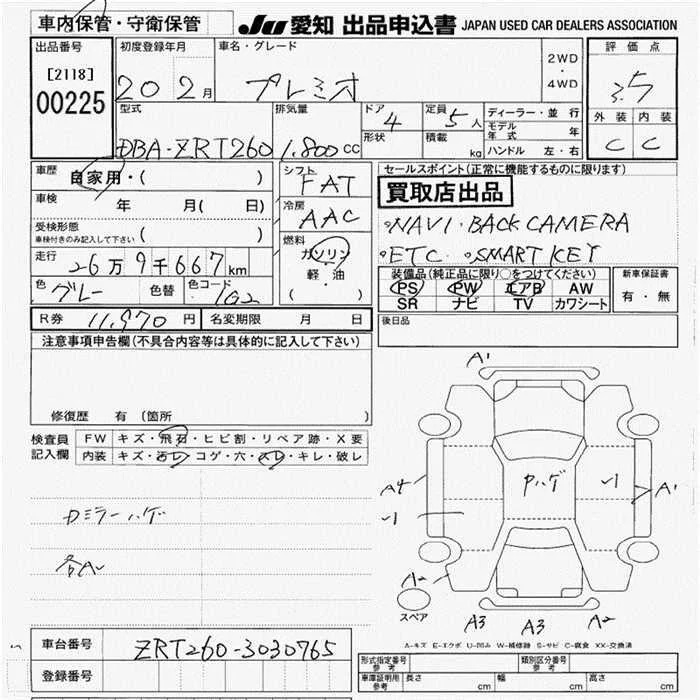 車内保管・守衛保管
JU 愛知 出品申込書 JAPAN USED CAR DEALERS ASSOCIATION
出品番号 初度登録年月 車名・グレード 2WD・4WD 評価点
[2118] 20 2月 プレミオ 3.5
00225
型式 排気量 ドア 4 定員 5人 ディーラー・並行 外装 内装
DBA-ZRT260 1,800cc 形状 積載 kg モデル年式 年 C C
ハンドル 左・右
車歴 自家用・( ) シフト FAT セールスポイント(正常に機能するものに限ります)
車検 年 月( 日) 冷房 AAC 買取店出品
受検形態 ( ) 。NAVI・BACK CAMERA
車検付きのみ記入して下さい 燃料 ガソリン 。ETC 。SMART KEY
走行 26万9千667km 軽・油
色 グレー 色替 色コード 1G2 (・)
装備品(純正品に限り○をつけてください) 新車保証書
PS PW エアB AW 有・無
SR ナビ TV カワシート
R券 11,970円 名変期限 月 日 後日品
注意事項申告欄(不具合内容等は具体的に記入して下さい)
修復歴 有(箇所 )
検査員記入欄 FW キズ・飛石・ヒビ割・リペア跡・X要
内装 キズ・汚レ・コゲ・穴・スレ・キレ・破レ
A1
A4
Pハゲ
A1
Dミラーハゲ
各A
A2
スペア
A3 A3 A2
A-キズ E-エクボ U-凹み W-補修跡 S-サビ C-腐食 XX-交換済
車台番号 ZRT260-3030765
登録番号
形式指定番号 参考 類別区分番号 参考
車庫証明用 参考 長さ cm 幅 cm 高さ cm